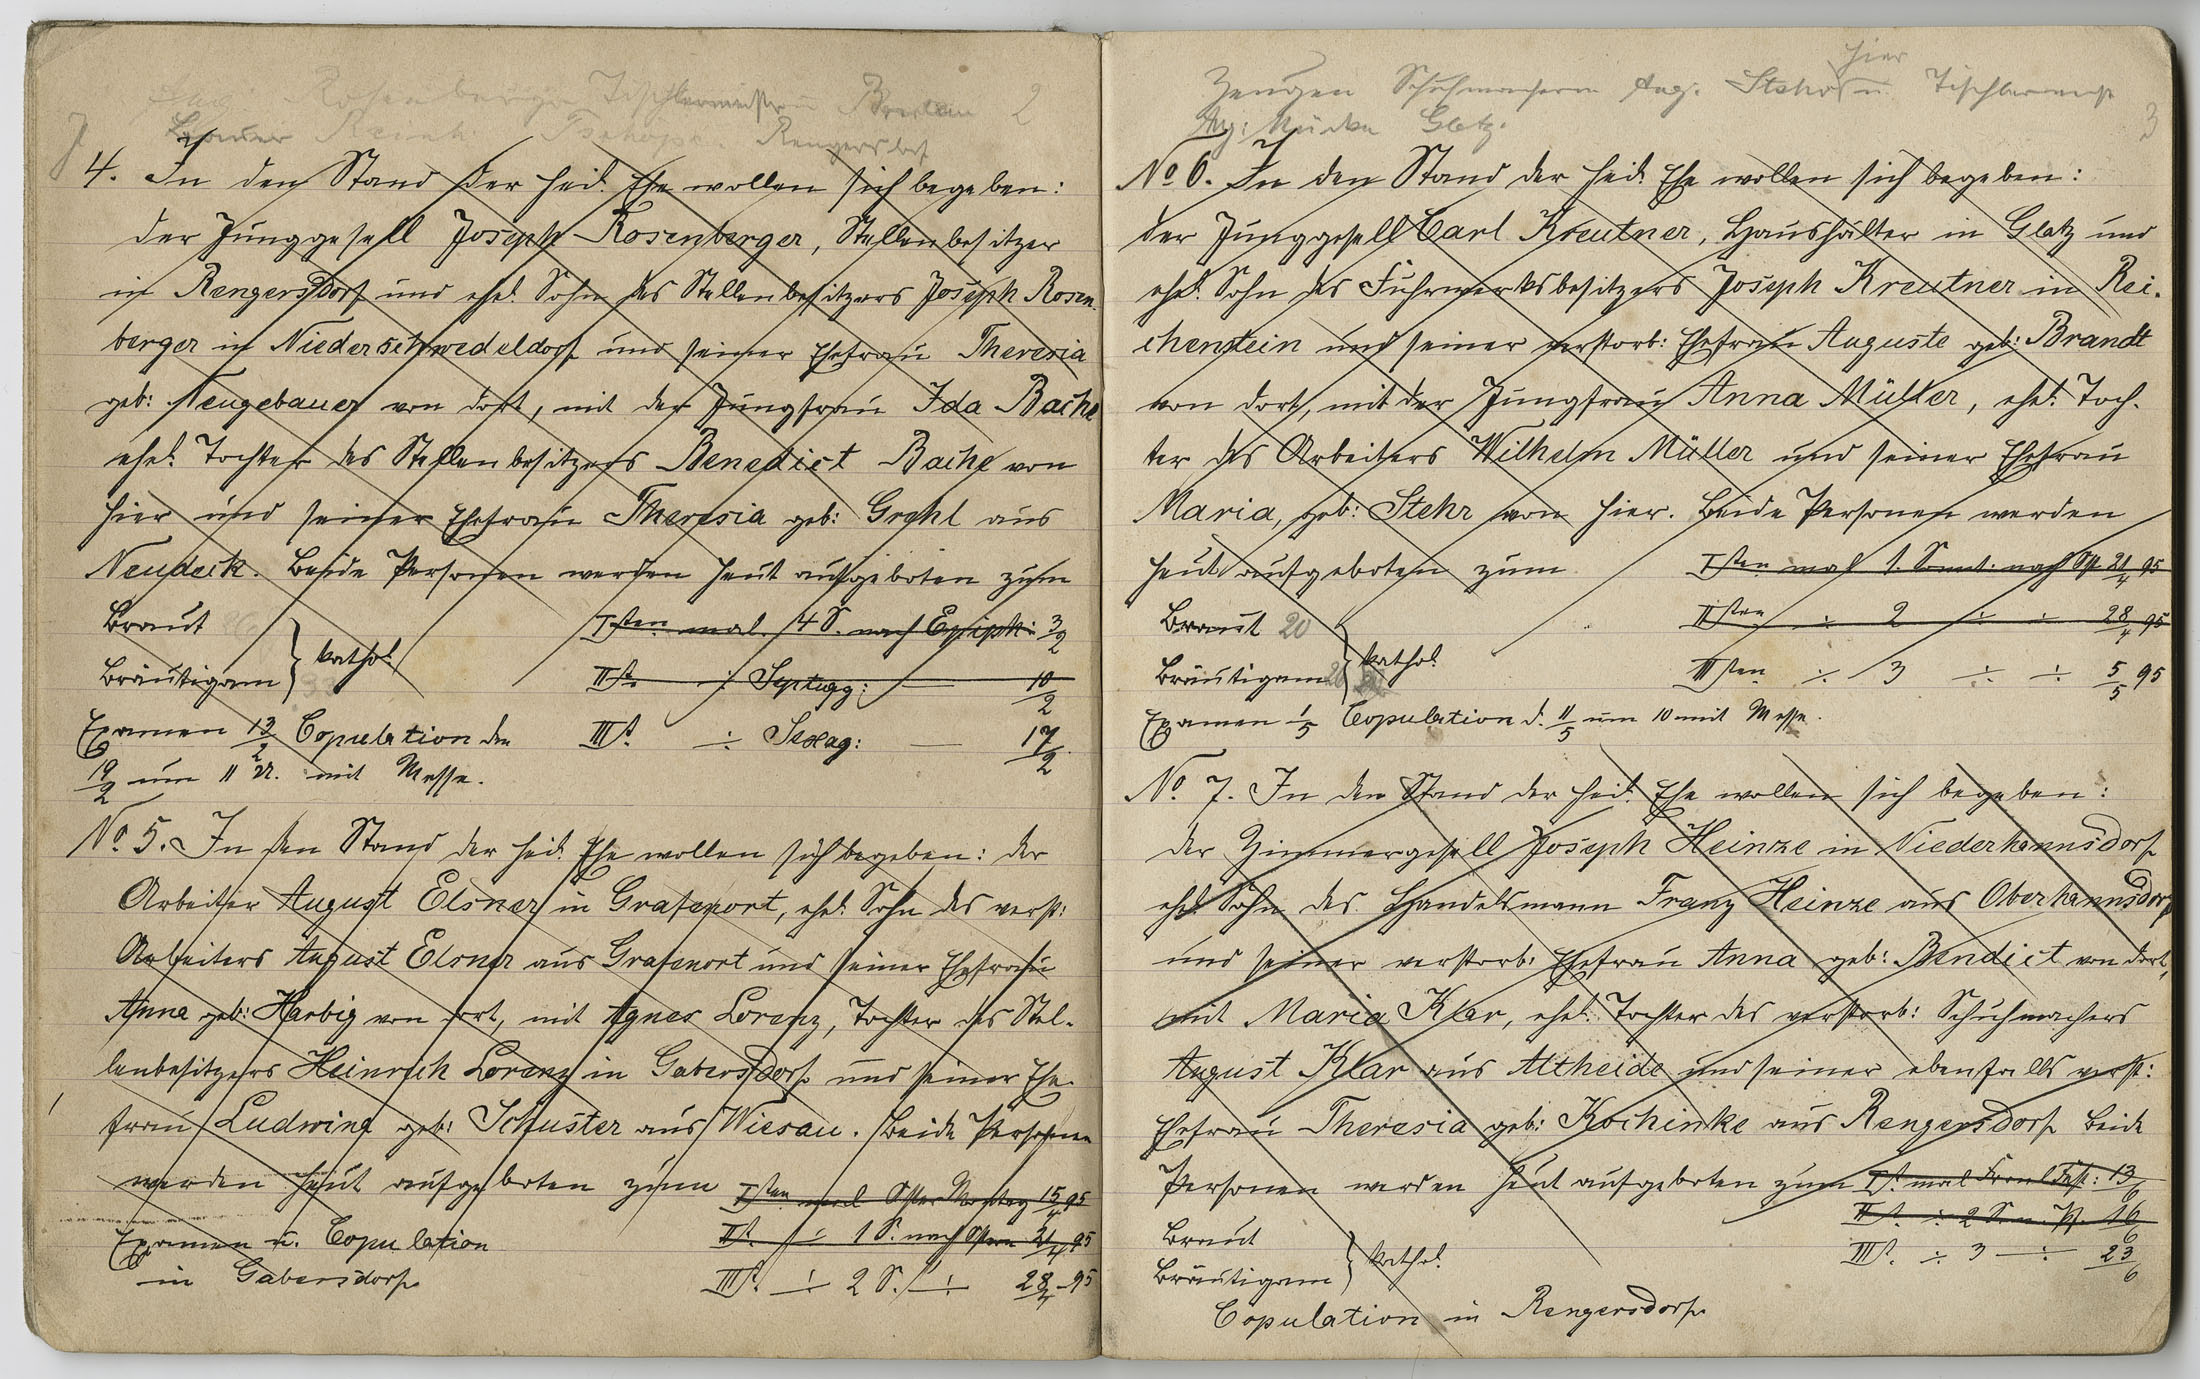 Rosenberger Tischlermeister Breslau 2
Reinh. Tschöpe. Rengersdf
4. In den Stand der heil. Ehe wollen sich begeben:
der Junggesell Joseph Rosenberger, Stellenbesitzer
in Rengersdorf und ehel. Sohn des Stellenbesitzers Joseph Rosen-
berger in Niederschwedeldorf und seiner Ehefrau Theresia
geb: Neugebauer von dort, mit der Jungfrau Ida Bache
ehel. Tochter des Stellenbesitzers Benedict Bache von
hier und seiner Ehefrau Theresia geb: Groehl aus
Neudeck. Beide Personen werden heut aufgeboten zum
Braut
Bräutigam } kathol.
Isten mal. 4 S. nach Epiph: 3/2
IIt. ÷ Septuag: — 10/2
IIIt. ÷ Sexag: — 17/2
Examen 13/2 Copulation den
19/2 um 11 U. mit Messe.
No. 5. In den Stand der heil. Ehe wollen sich begeben: der
Arbeiter August Elsner in Grafenort, ehel. Sohn des verst:
Arbeiters August Elsner aus Grafenort und seiner Ehefrau
Anna geb: Harbig von dort, mit Agnes Lorenz, Tochter des Stel-
lenbesitzers Heinrich Lorenz in Gabersdorf und seiner Ehe-
frau Ludwina geb: Schuster aus Wiesau. Beide Personen
werden heut aufgeboten zum
Isten mal Oster Montag 15/4 95
IIt. ÷ 1 S. nach Ostern 21/4 95
IIIt. ÷ 2 S. ÷ 28/4 95
Examen u. Copulation
in Gabersdorf
hier
Zeugen Schuhmacherm Aug. u. Tischlermst
Aug: Mücke Glatz. 3
No 6. In den Stand der heil. Ehe wollen sich begeben:
der Junggesell Carl Kreutner, Haushälter in Glatz und
ehel. Sohn des Fuhrwerksbesitzers Joseph Kreutner in Rei-
chenstein und seiner verstorb: Ehefrau Auguste geb: Brandt
von dort, mit der Jungfrau Anna Müller, ehel. Toch-
ter des Arbeiters Wilhelm Müller und seiner Ehefrau
Maria, geb: Stehr von hier. Beide Personen werden
heut aufgeboten zum
Isten mal 1. Sonnt. nach Ost 21/4 95
IIsten ÷ 2 ÷ ÷ 28/4 95
IIIsten ÷ 3 ÷ ÷ 5/5 95
Braut 20
Bräutigam 26 } kathol.
Examen 1/5 Copulation d. 11/5 um 10 mit Messe.
No. 7. In den Stand der heil. Ehe wollen sich begeben:
der Zimmergesell Joseph Heinze in Niederhannsdorf
ehel. Sohn des Handelsmann Franz Heinze aus Oberhannsdorf
und seiner verstorb: Ehefrau Anna geb: Bendict von dort,
mit Maria Klar, ehel. Tochter des verstorb: Schuhmachers
August Klar aus Altheide und seiner ebenfalls verst:
Ehefrau Theresia geb: Kochinke aus Rengersdorf Beide
Personen werden heut aufgeboten zum It. mal Fronl Fest: 13/6
IIt. ÷ 2 S. n. Pf. 16/6
IIIt. ÷ 3 — ÷ 23/6
Braut
Bräutigam } kathol.
Copulation in Rengersdorf